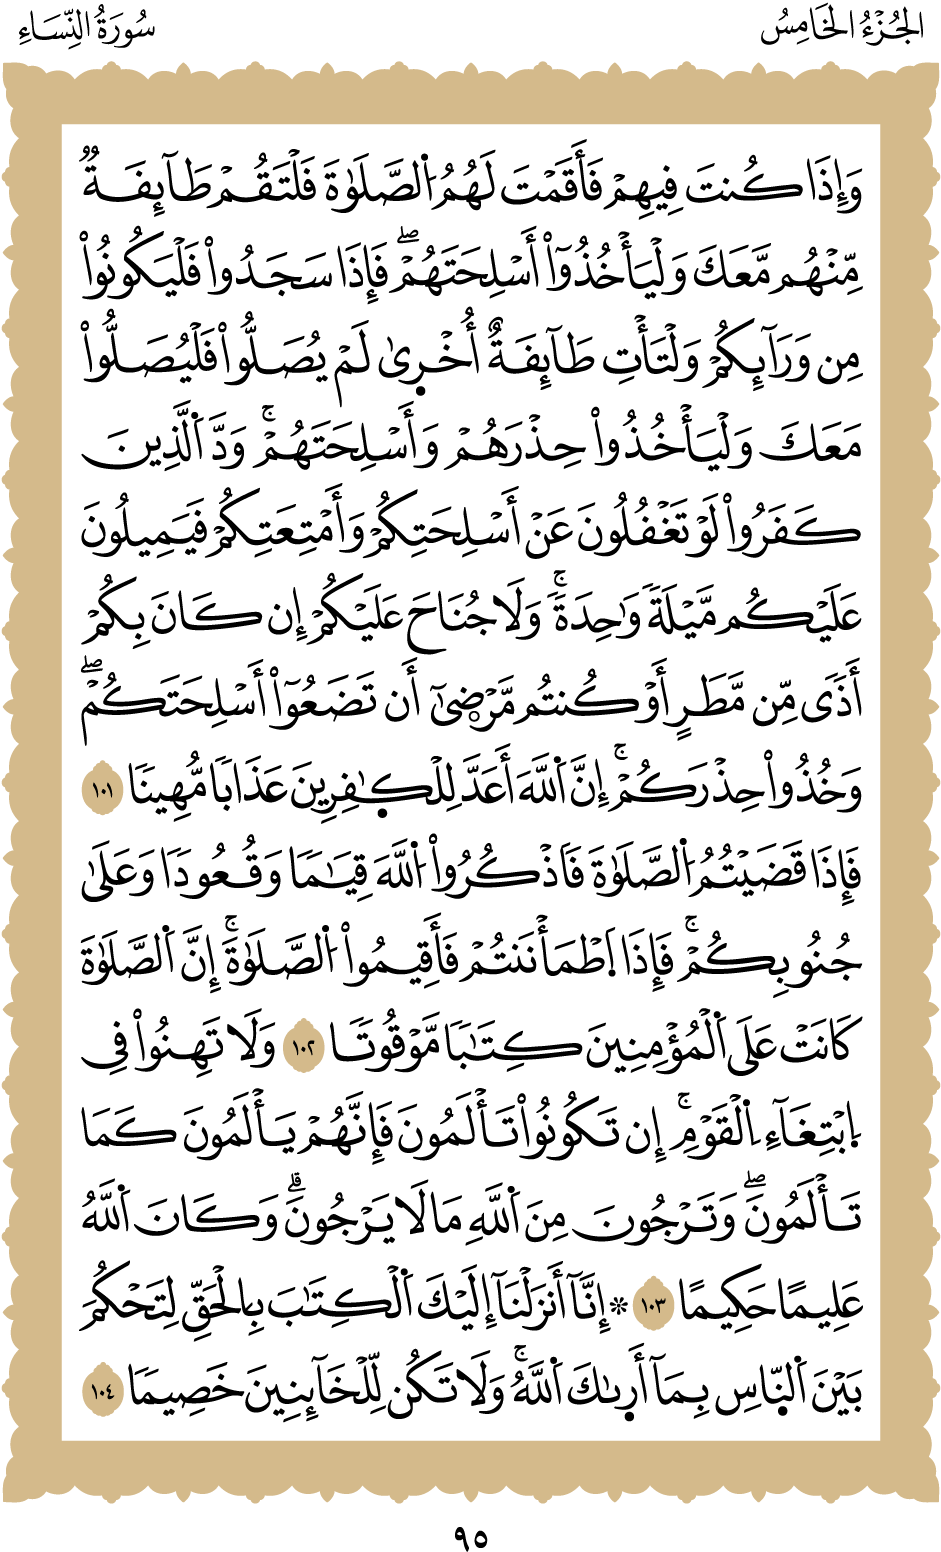 الجُزْءُ الخَامِسُ
سُورَةُ النِّسَاءِ
وَإِذَا كُنتَ فِيهِمْ فَأَقَمْتَ لَهُمُ اُ۬لصَّلَوٰةَ فَلْتَقُمْ طَآئِفَةٞ
مِّنْهُم مَّعَكَ وَلْيَأْخُذُوٓاْ أَسْلِحَتَهُمْۖ فَإِذَا سَجَدُواْ فَلْيَكُونُواْ
مِن وَرَآئِكُمْ وَلْتَأْتِ طَآئِفَةٌ أُخْر۪يٰ لَمْ يُصَلُّواْ فَلْيُصَلُّواْ
مَعَكَ وَلْيَأْخُذُواْ حِذْرَهُمْ وَأَسْلِحَتَهُمْۚ وَدَّ اَ۬لَّذِينَ
كَفَرُواْ لَوْ تَغْفُلُونَ عَنْ أَسْلِحَتِكُمْ وَأَمْتِعَتِكُمْ فَيَمِيلُونَ
عَلَيْكُم مَّيْلَةٗ وَٰحِدَةٗۚ وَلَا جُنَاحَ عَلَيْكُمْ إِن كَانَ بِكُمْ
أَذٗى مِّن مَّطَرٍ أَوْ كُنتُم مَّرْض۪يٰٓ أَن تَضَعُوٓاْ أَسْلِحَتَكُمْۖ
وَخُذُواْ حِذْرَكُمْۚ إِنَّ اَ۬للَّهَ أَعَدَّ لِلْكٜ۪فِرِينَ عَذَابٗا مُّهِينٗا ١٠١
فَإِذَا قَضَيْتُمُ اُ۬لصَّلَوٰةَ فَاَذْكُرُواْ اُ۬للَّهَ قِيَٰمٗا وَقُعُودٗا وَعَلَىٰ
جُنُوبِكُمْۚ فَإِذَا اَ۪طْمَأْنَنتُمْ فَأَقِيمُواْ اُ۬لصَّلَوٰةَۚ إِنَّ اَ۬لصَّلَوٰةَ
كَانَتْ عَلَى اَ۬لْمُؤْمِنِينَ كِتَٰبٗا مَّوْقُوتٗا ١٠٢ وَلَا تَهِنُواْ فِي
اِ۪بْتِغَآءِ اِ۬لْقَوْمِۚ إِن تَكُونُواْ تَأْلَمُونَ فَإِنَّهُمْ يَأْلَمُونَ كَمَا
تَأْلَمُونَۖ وَتَرْجُونَ مِنَ اَ۬للَّهِ مَا لَا يَرْجُونَۗ وَكَانَ اَ۬للَّهُ
عَلِيمًا حَكِيمًا ١٠٣ ۞ إِنَّآ أَنزَلْنَآ إِلَيْكَ اَ۬لْكِتَٰبَ بِالْحَقِّ لِتَحْكُمَ
بَيْنَ اَ۬لنّ۪اسِ بِمَآ أَر۪ىٰكَ اَ۬للَّهُۚ وَلَا تَكُن لِّلْخَآئِنِينَ خَصِيمٗا ١٠٤
٩٥